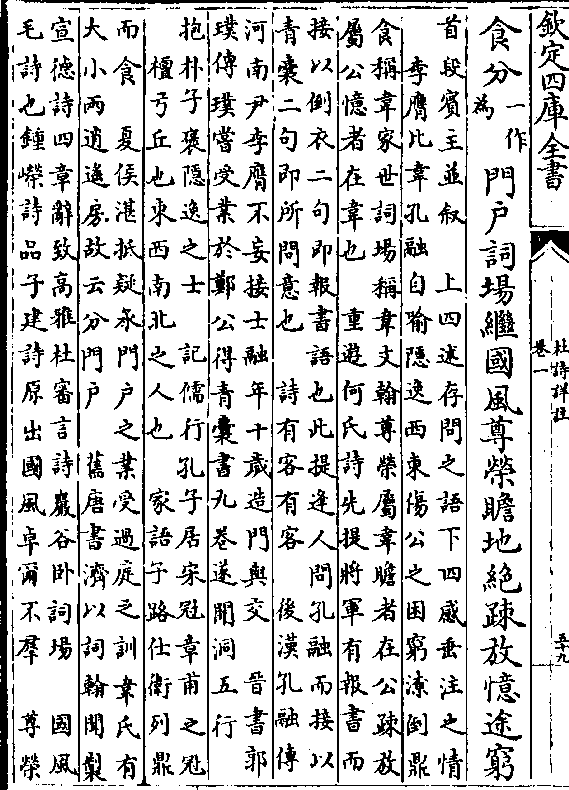 欽定四庫全書
杜詩詳註
卷一
五十九
食分一作為門戶詞場繼國風尊榮瞻地絶疎放憶途窮
首段賓主並叙　上四述存問之語下四感垂注之情
李膺比韋孔融自喻隠逸西東傷公之困窮潦倒鼎
食稱韋家世詞場稱韋文翰尊榮屬韋瞻者在公疎放
屬公憶者在韋也　重遊何氏詩先提將軍有報書而
接以倒衣二句即報書語也此提逢人問孔融而接以
青囊二句即所問意也　詩有客有客　後漢孔融傳
河南尹李膺不妄接士融年十歲造門與交　晉書郭
璞傳璞嘗受業於鄭公得青囊書九卷遂開洞五行
抱朴子褒隠逸之士　記儒行孔子居宋冠章甫之冠
檀弓丘也東西南北之人也　家語子路仕衛列鼎
而食　夏侯湛抵疑承門戶之業受過庭之訓韋氏有
大小兩逍遥房故云分門戶　舊唐書濟以詞翰聞製
宣德詩四章辭致高雅杜審言詩巖谷卧詞場　國風
毛詩也鍾嶸詩品子建詩原出國風卓爾不羣　尊榮